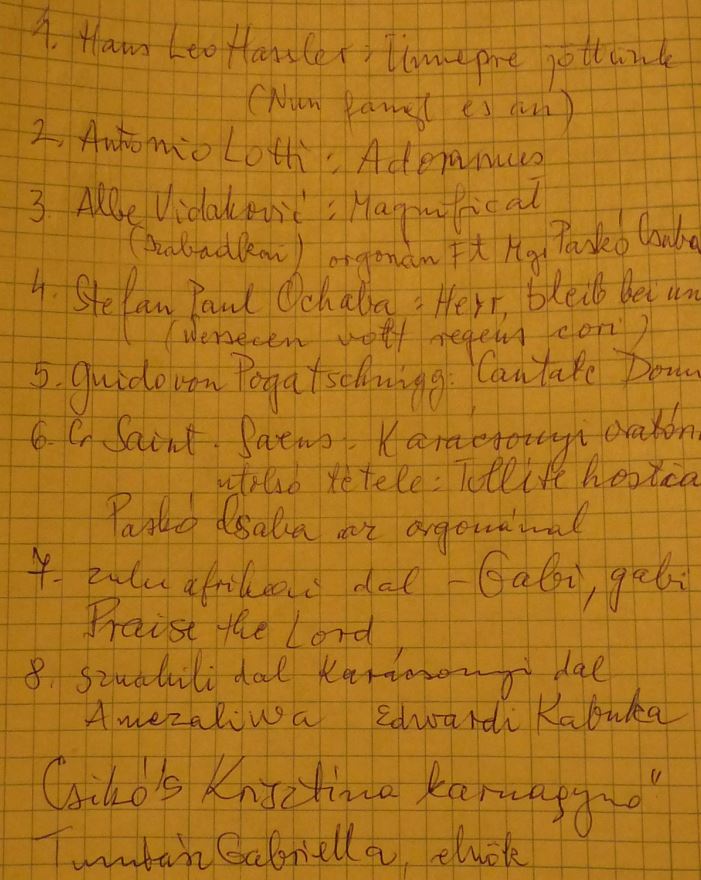 1. Hans Leo Hassler: Ünnepre jöttünk
(Nun fangt es an)
2. Antonio Lotti: Adoramus
3. Albe Vidaković: Magnificat
(szabadkai) orgonán Ft. Mg. Paskó Csaba
4. Stefan Paul Ochaba: Herr, bleib bei un
(Versecen volt regens cori)
5. Guido von Pogatschnigg: Cantate Dom
6. C. Saint-Saens: Karácsonyi oratóri
utolsó tétele: Tollite hostia
Paskó Csaba az orgonánál
7. zulu afrikai dal - Gabi, gabi
Praise the Lord
8. szuahili dal Karácsonyi dal
Amezaliwa Edwardi Kabuka
Csikós Krisztina karnagynő
Gabriella, elnök